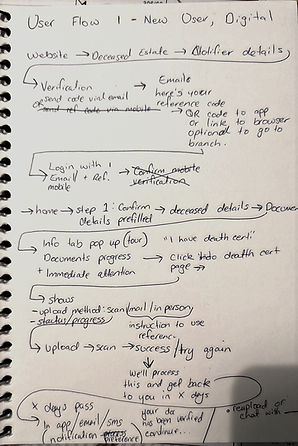 User Flow 1 - New User, Digital
Website → Deceased Estate → Notifier details
→ Verification → Email:
or send code via email here's your
or send ref code via mobile reference code
→ QR code to app
or link to browser
optional to go to
branch.
Login with 1 → Confirm mobile
Email + Ref. verification
mobile
→ home → step 1: Confirm → deceased details → Documen
details prefilled
Info tab pop up (tour) "I have death certi"
Documents progress → Click to death cert
+ Immediate attention page →
→ shows
- upload method: scan/mail/in person
- status/progress instruction to use
referenc.
→ upload → scan → success/try again
We'll process
this and get back
to you in X days
X days pass
→ In app/email/sms
notification preference
your doc
has been verified
continue...
• reupload or
chat with